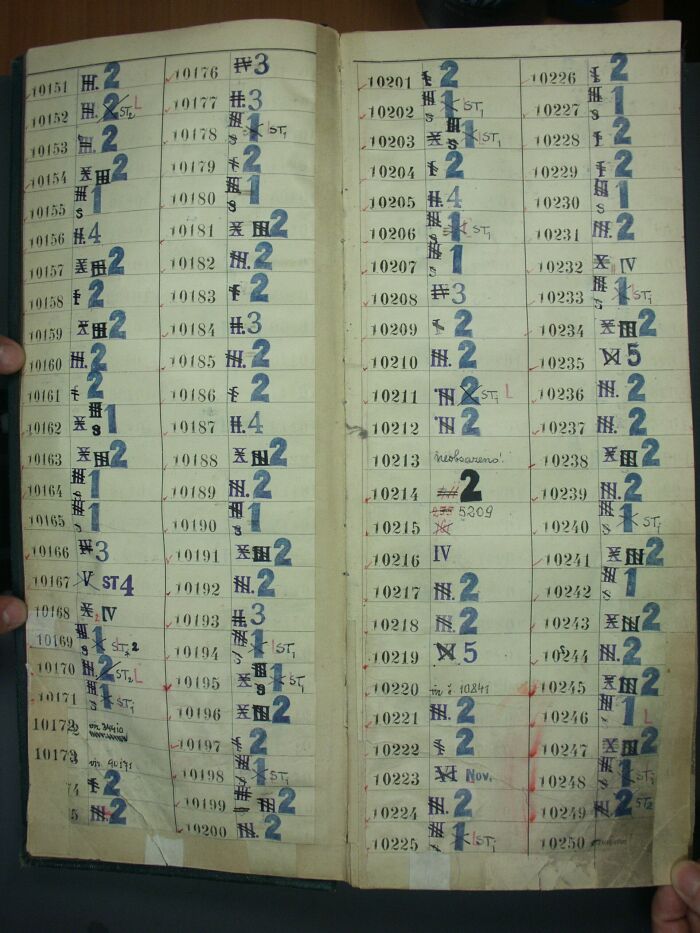 10151 III. 2
10152 III. 2 ST2 L
10153 III. 2
10154 X III 2
10155 III s 1
10156 II. 4
10157 X III 2
10158 I 2
10159 X III 2
10160 III. 2
10161 I 2
10162 X III s 1
10163 X III 2
10164 III s 1
10165 III s 1
10166 IV 3
10167 V ST 4
10168 X IV
10169 III s 1 ST 2
10170 III. 2 ST2 L
10171 III s 1 ST1
10172
10173
4 I 2
5 III. 2
10176 IV 3
10177 II. 3
10178 III s 1 ST1
10179 I 2
10180 III s 1
10181 X III 2
10182 III. 2
10183 I 2
10184 II. 3
10185 III. 2
10186 I 2
10187 II. 4
10188 X III 2
10189 III. 2
10190 III s 1
10191 X III 2
10192 III. 2
10193 II. 3
10194 III s 1 ST1
10195 X III s 1 ST1
10196 X III 2
10197 I 2
10198 III s 1 ST1
10199 III 2
10200 III. 2
10201 I 2
10202 III s 1 ST1
10203 X III s 1 ST1
10204 I 2
10205 II. 4
10206 III s 1 ST1
10207 III s 1
10208 IV 3
10209 I 2
10210 III. 2
10211 III 2 ST1 L
10212 III 2
10213 neobsazeno!
10214 2
10215 5209
10216 IV
10217 III. 2
10218 III. 2
10219 V. 5
10220 10841
10221 III. 2
10222 I 2
10223 VI Nov.
10224 III. 2
10225 III s 1 ST1
10226 I 2
10227 III s 1
10228 I 2
10229 I 2
10230 III s 1
10231 III. 2
10232 X IV
10233 III s 1 ST1
10234 X III 2
10235 VI 5
10236 III. 2
10237 III. 2
10238 X III 2
10239 III. 2
10240 III s 1 ST1
10241 X III 2
10242 III s 1
10243 X III 2
10244 III. 2
10245 X III 2
10246 III s 1 L
10247 X III 2
10248 III s 1 ST1
10249 III. 2 ST2
10250